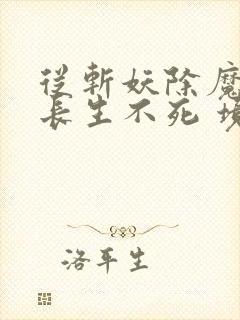 從斬妖除魔
長生不死 境
洛平生